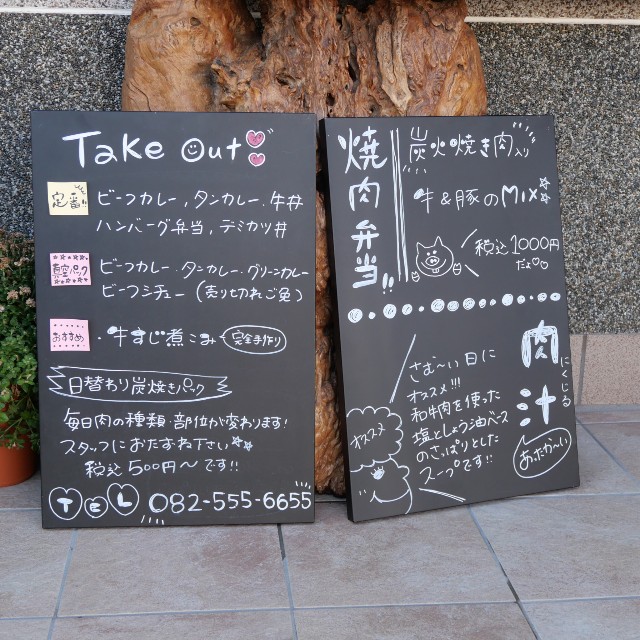 Take Out
定番!!
ビーフカレー, タンカレー, 牛丼
ハンバーグ弁当, デミカツ丼
真空パック
ビーフカレー, タンカレー, グリーンカレー
ビーフシチュー (売り切れご免)
おすすめ
・牛すじ煮こみ 完全手作り
日替わり炭焼きパック
毎日肉の種類・部位が変わります!
スタッフにおたずね下さい
税込500円〜です!!
TEL 082-555-6655
焼肉弁当!!
炭火焼き肉入り
牛&豚のMIX
税込1000円
だよ♡♡
肉汁
にくじる
あったか〜い
さむ〜い日に
オススメ!!!
和牛肉を使った
塩としょう油ベース
のさっぱりとした
スープです!!
オススメ